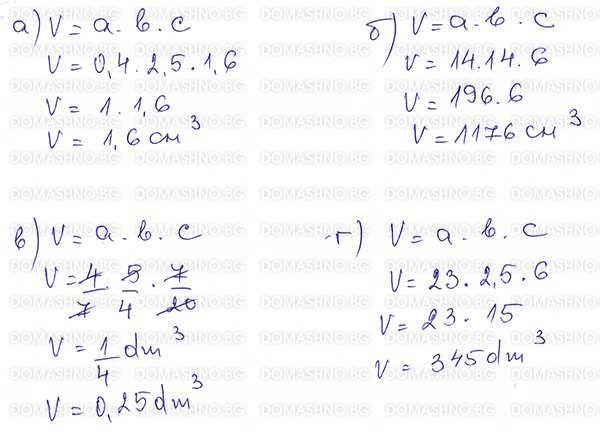 а) V = a . b . c
V = 0,4 . 2,5 . 1,6
V = 1 . 1,6
V = 1,6 см³
б) V = a . b . c
V = 14 . 14 . 6
V = 196 . 6
V = 1176 см³
в) V = a . b . c
V = 4/7 . 5/4 . 7/20
V = 1/4 dm³
V = 0,25 dm³
г) V = a . b . c
V = 23 . 2,5 . 6
V = 23 . 15
V = 345 dm³
DOMASHNO.BG